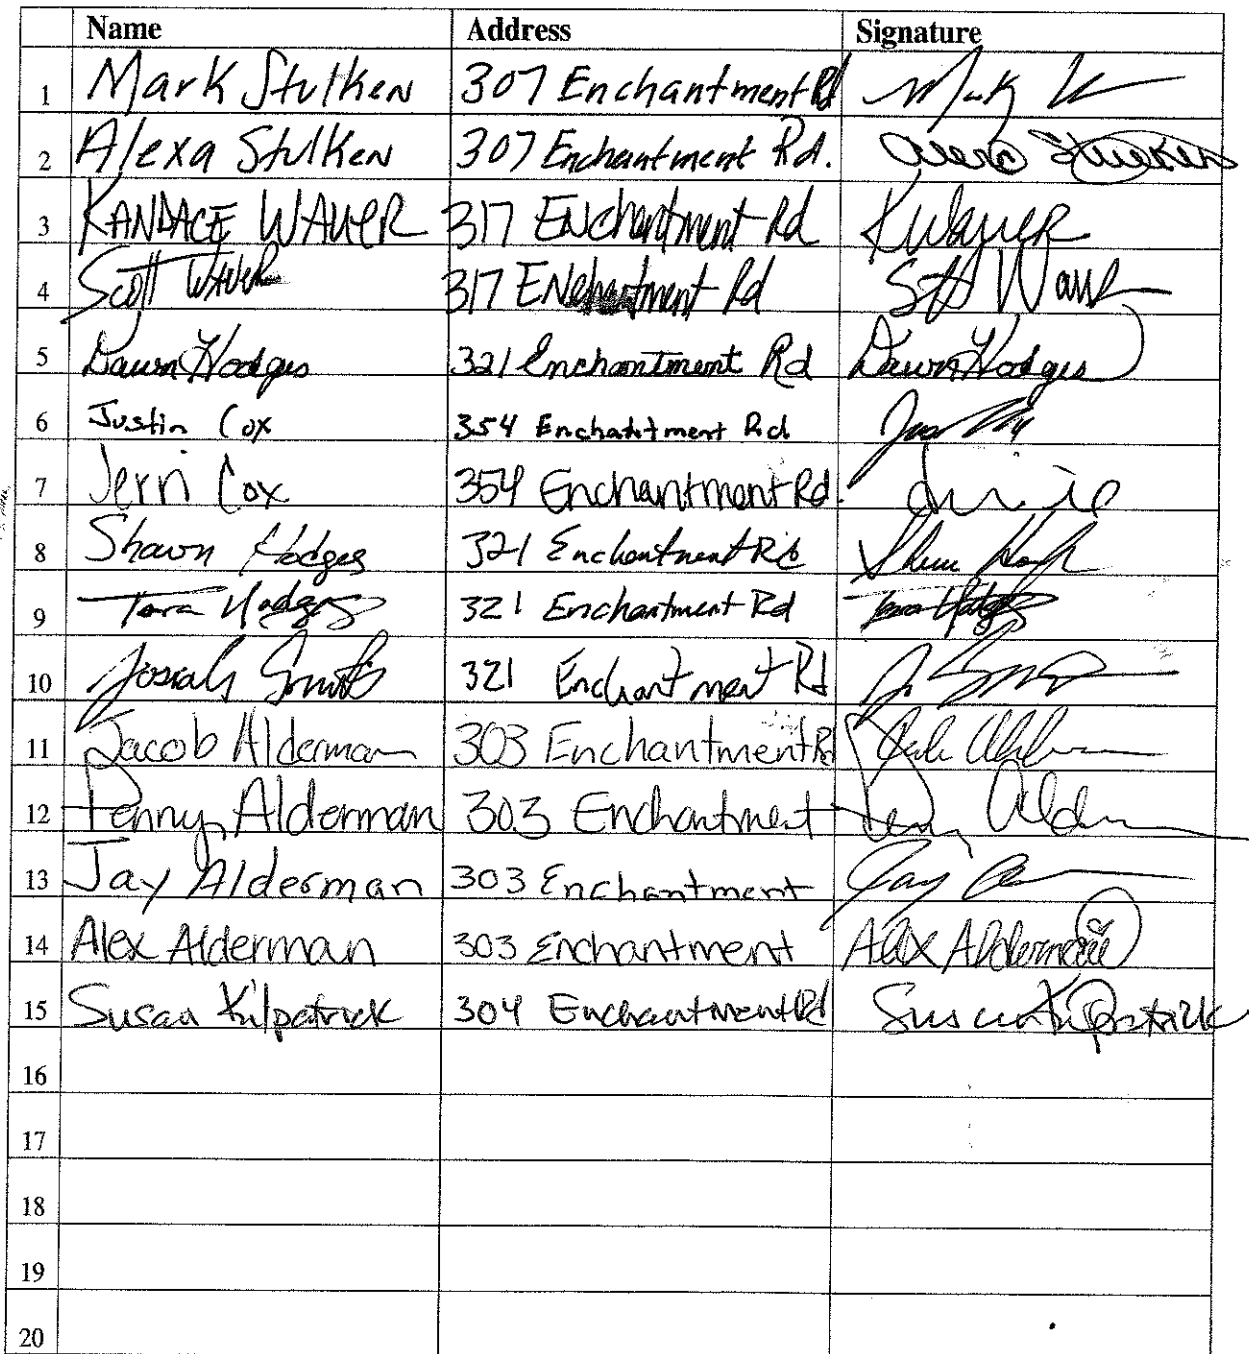 Name Address Signature
1 Mark Stulken 307 Enchantment Rd Mark
2 Alexa Stulken 307 Enchantment Rd. Alexa Stulken
3 KANDACE WAUER 317 ENchantment Rd KWauer
4 Scott WAUER 317 ENchantment Rd Scott Wauer
5 Dawn Hodges 321 Enchantment Rd Dawn Hodges
6 Justin Cox 354 Enchantment Rd
7 Jerri Cox 354 Enchantment Rd.
8 Shawn Hodges 321 Enchantment Rd Shawn
9 Tara Hodges 321 Enchantment Rd Tara Hodges
10 Josiah Smith 321 Enchantment Rd
11 Jacob Alderman 303 Enchantment Rd
12 Penny Alderman 303 Enchantment Penny
13 Jay Alderman 303 Enchantment Jay
14 Alex Alderman 303 Enchantment Alex Alderman
15 Susan Kilpatrick 304 Enchantment Rd Susan Kilpatrick
16
17
18
19
20